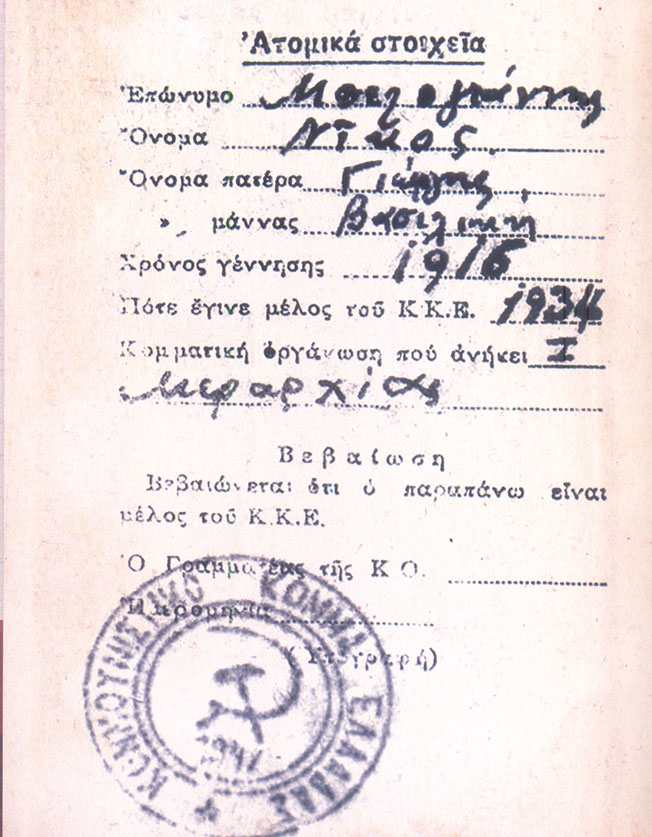 Ἀτομικά στοιχεῖα
Ἐπώνυμο Μπελογιάννης
Ὄνομα Νῖκος
Ὄνομα πατέρα Γιώργης
» μάννας Βασιλική
Χρόνος γέννησης 1916
Πότε ἔγινε μέλος τοῦ Κ.Κ.Ε. 1934
Κομματική ὀργάνωση πού ἀνήκει Ι
Μεραρχίας
Βεβαίωση
Βεβαιώνεται ὅτι ὁ παραπάνω εἶναι
μέλος τοῦ Κ.Κ.Ε.
Ὁ Γραμματέας τῆς Κ.Ο.
Ἡμερομηνία
(Ὑπογραφή)
ΚΟΜΜΟΥΝΙΣΤΙΚΟ ΚΟΜΜΑ ΕΛΛΑΔΑΣ